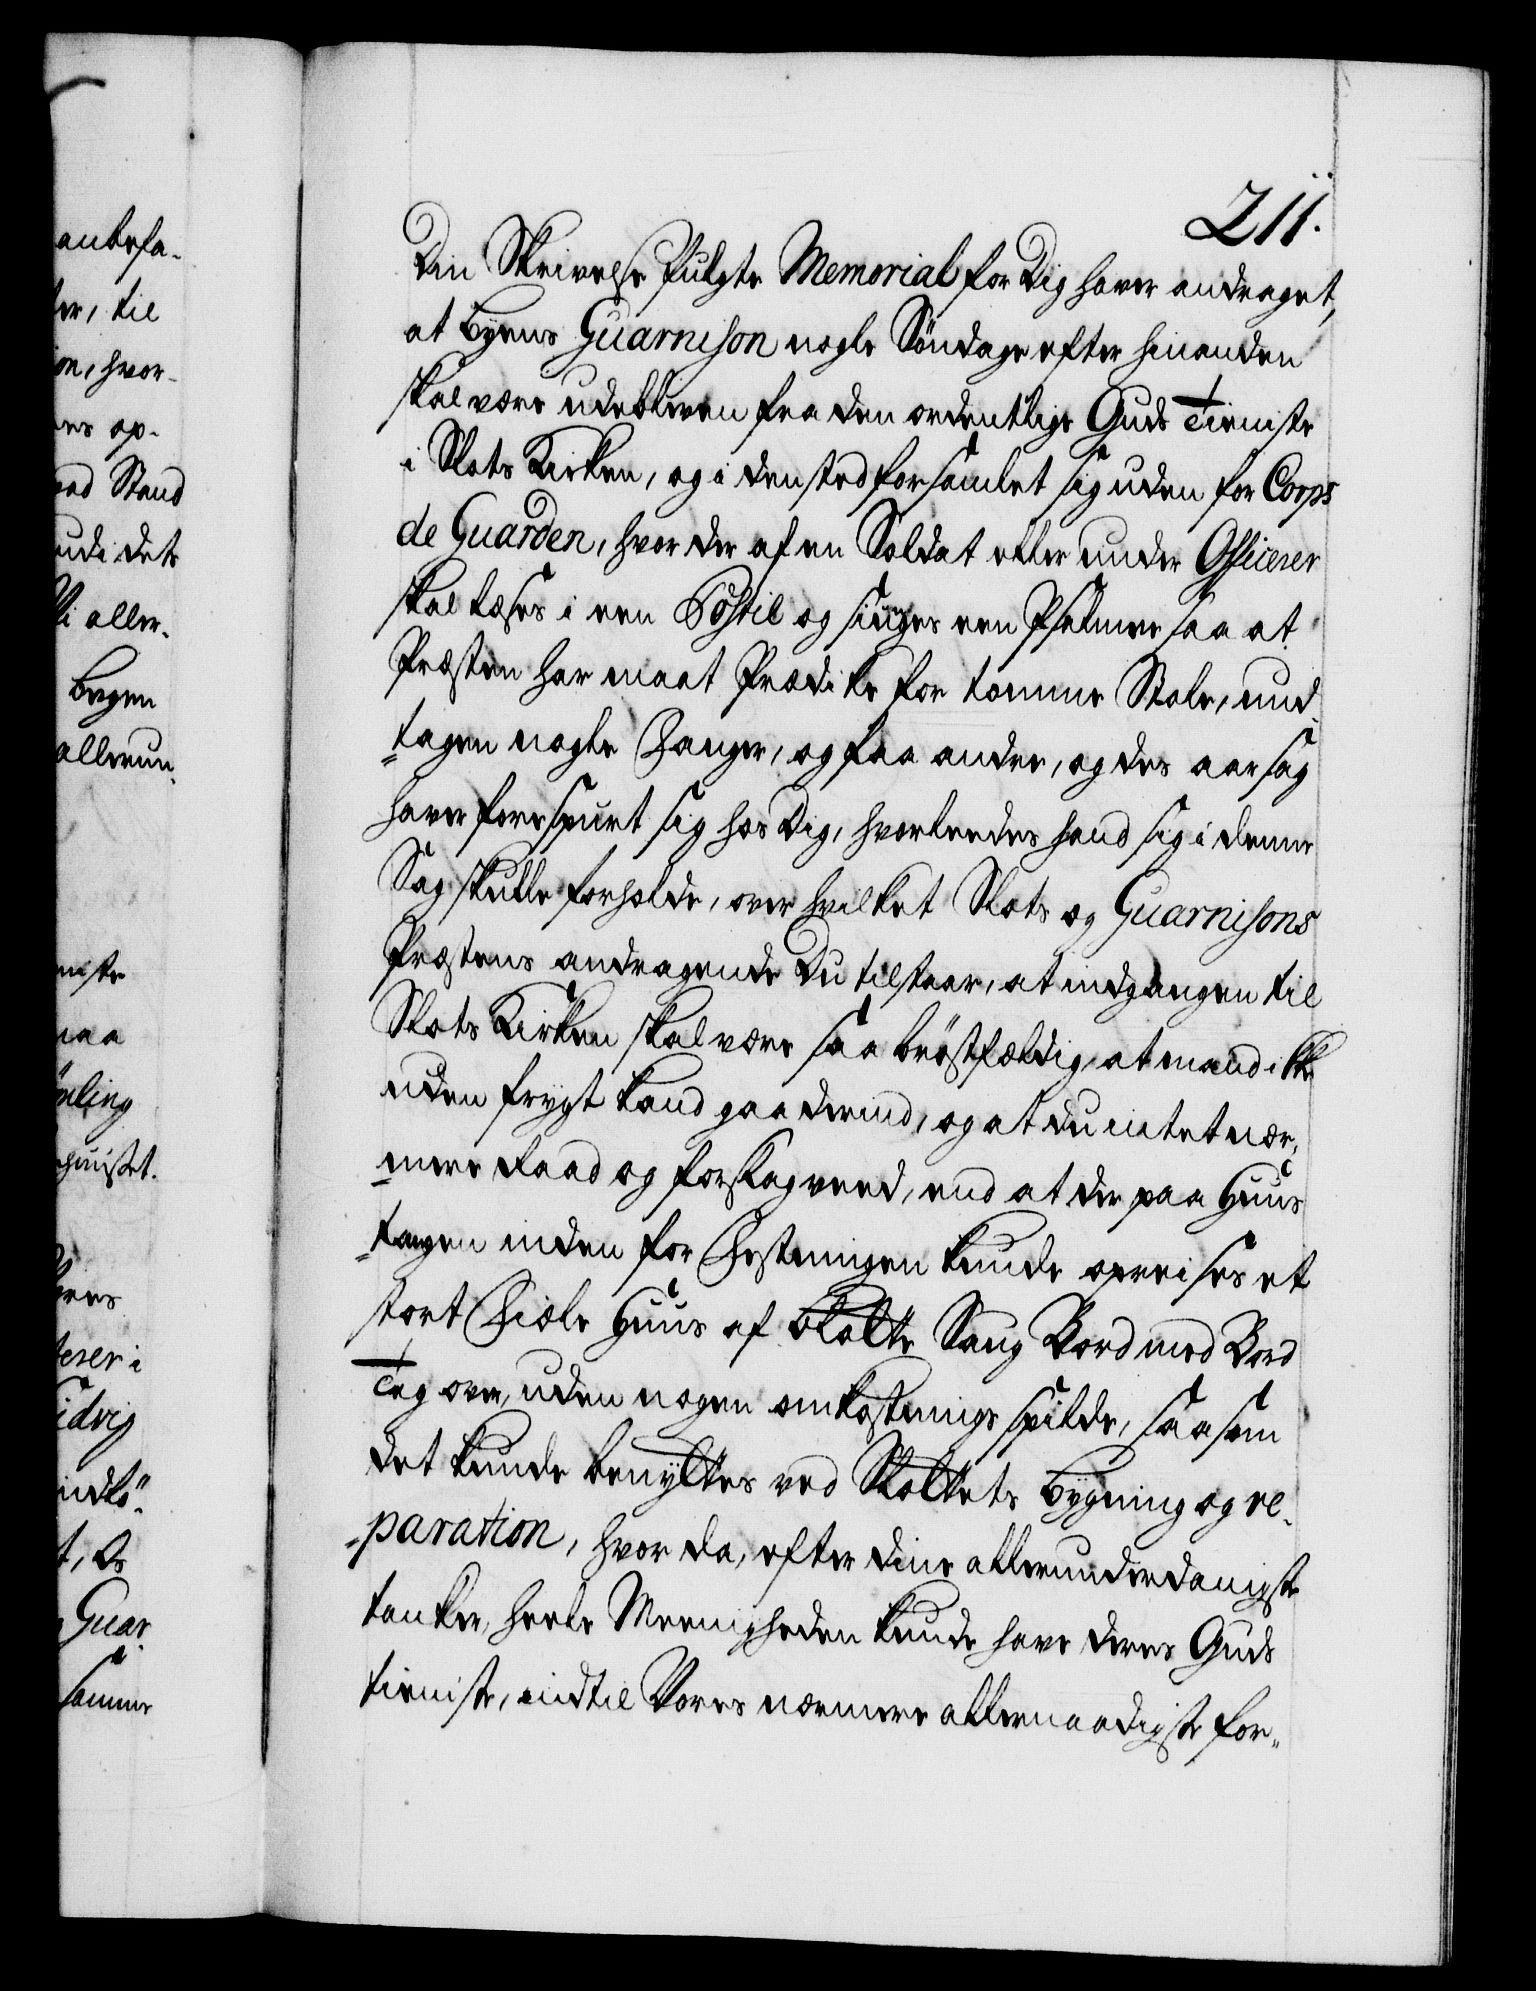 anbefa-
er, til
on, hvor-
res op-
ad Stand
udi dets
Vi aller-
Begen
allerun-
niste
maa
huuset.
eres
terer i
idvig
indkö-
t, Os
Guar
samme
211.
Din Skrivelse fulgte Memorial for Dig haver andraget,
at Byens Guarnison nogle Söndage efter hinanden
skal være udebleven fra den ordentlige Guds Tieniste
i Slots Kirken, og i den sted forsamlet sig uden for Corps
de Guarden, hvor der af en Soldat eller under Officerer
skal læses i een Postil og siunges een Psalme saa at
Præsten har maat Prædike for tomme Stole, und
-tagen nogle Fanger, og faa andre, og des aarsag
haver forespurt sig hos Dig, hvorledes hand sig i denne
Sag skulle forholde, over hvilket Slots og Guarnisons
Præstens andragende Du tilstaar, at indgangen til
Slots Kirken skal være saa bröstfældig, at mand ikke
uden frygt kand gaa derind, og at du intet nær-
-mere Raad og forslag veed, end at der paa Huus
-tangen inden for Festningen kunde opreises et
stort Fiæle Huus af Slotte Saug Bord med Bord
Tag over, uden nogen omkostnings spilde, saasom
det kunde benyttes ved Slottets bygning og re-
-paration, hvor da, efter dine allerunderdanigste
tanker, heele Meenigheden kunde have deres Guds
tieniste, indtil Vores nærmere allernaadigste for-